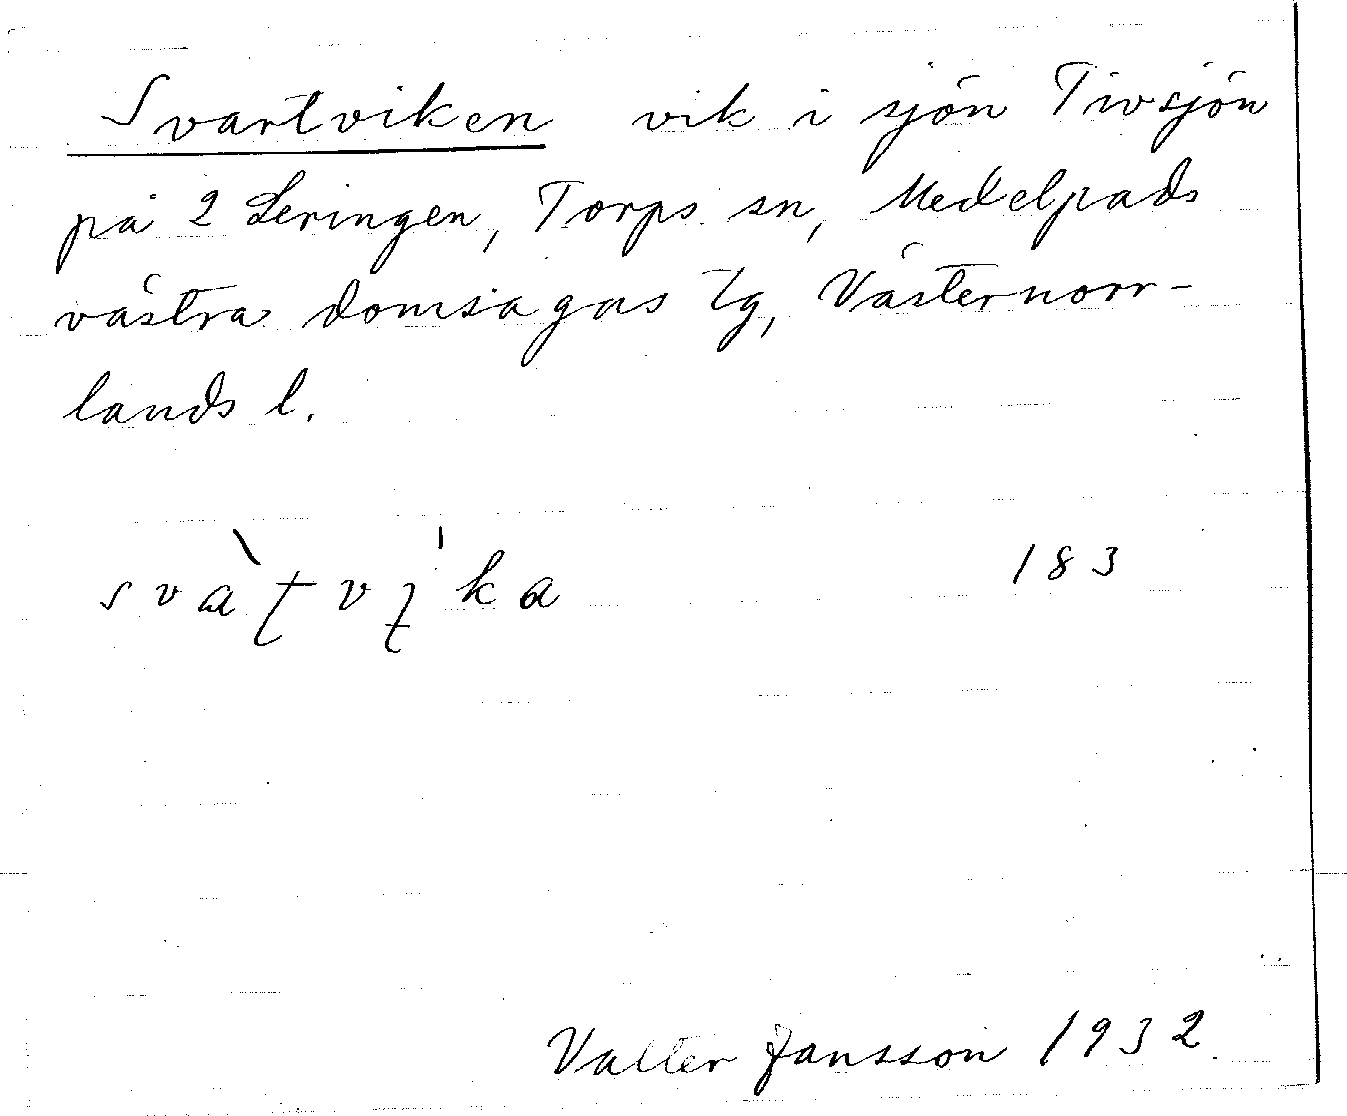 Svartviken vik i sjön Tivsjön
på 2 Leringen, Torps sn, Medelpads
västra domsagas tg, Västernorr-
lands l.
svàʈvı̨ka 183
Valter Jansson 1932